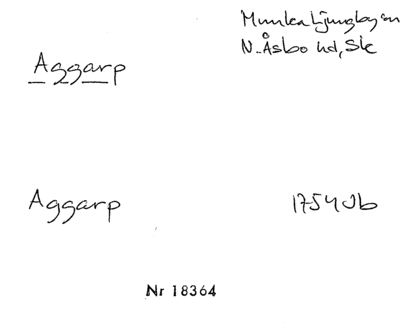 Munka Ljungby sn
N. Åsbo hd, Sk
Aggarp
Aggarp 1754 Jb
Nr 18364